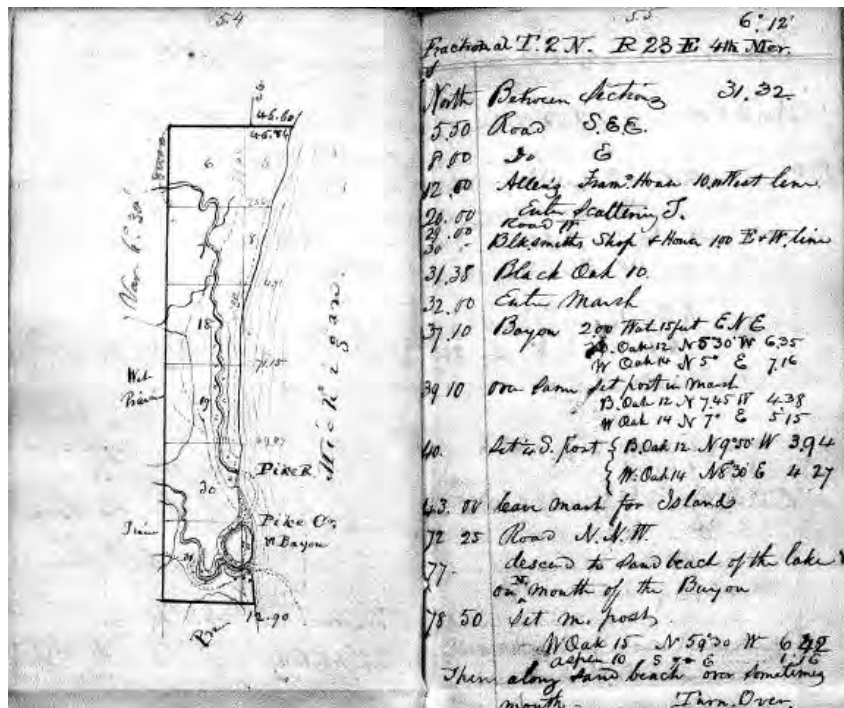 54
46.60
46.84
6
Var. 6° 30'
8
18
Wet
Prairie
Michigan.
19
Pike R.
30
Pike Cr.
Bayou
31
12.90
55
6° 12'
Fractional T. 2 N. R 23 E 4th Mer.
North Between Sections 31.32.
5.50 Road S.E.E.
8.00 Do E
12.00 House 10 West line
20.00 Enter Scattering T.
29.00 Road W.
30 - Blksmiths Shop & House 100 E & W. line
31.38 Black Oak 10.
32.00 Enter Marsh
37.10 Bayou 200 15 feet E N E
B. Oak 12 N 5°30' W 6.35
W Oak 14 N 5° E 7.16
39 10 over Same Set post in Marsh
B. Oak 12 N 7.45 W 4.38
W Oak 14 N 7° E 5.15
40. Set ¼ S. post { B. Oak 12 N 9°50' W 3.94
{ W. Oak 14 N 8°30' E 4 27
43. 00 leave Marsh for Island
72 25 Road N.N.W.
77- descend to Sand beach of the lake
on mouth of the Bayou
78 50 Set m. post
W Oak 15 N 59°30 W 6 42
aspen 10 E 1.16
Then along Sand beach over sometimes
mouth - Turn Over